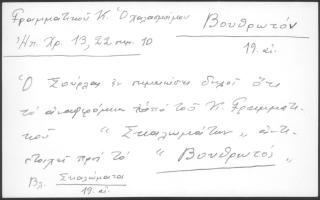 Γραμματικοῦ Κ. Ὁ χαλασμένος Βουθρωτόν
Ἠπ. Χρ. 13, 22 σημ. 10 19. αἰ.
Ὁ Σούρλας ἐν σημειώσει δηλοῖ ὅτι
τὸ ἀναφερόμενον ὑπὸ τοῦ Κ. Γραμματι
κοῦ " Σκαλωμάτων " ἀντι
στοιχεῖ πρὸς τὸ " Βουθρωτός "
Βλ. Σκαλώματα
19. αἰ.